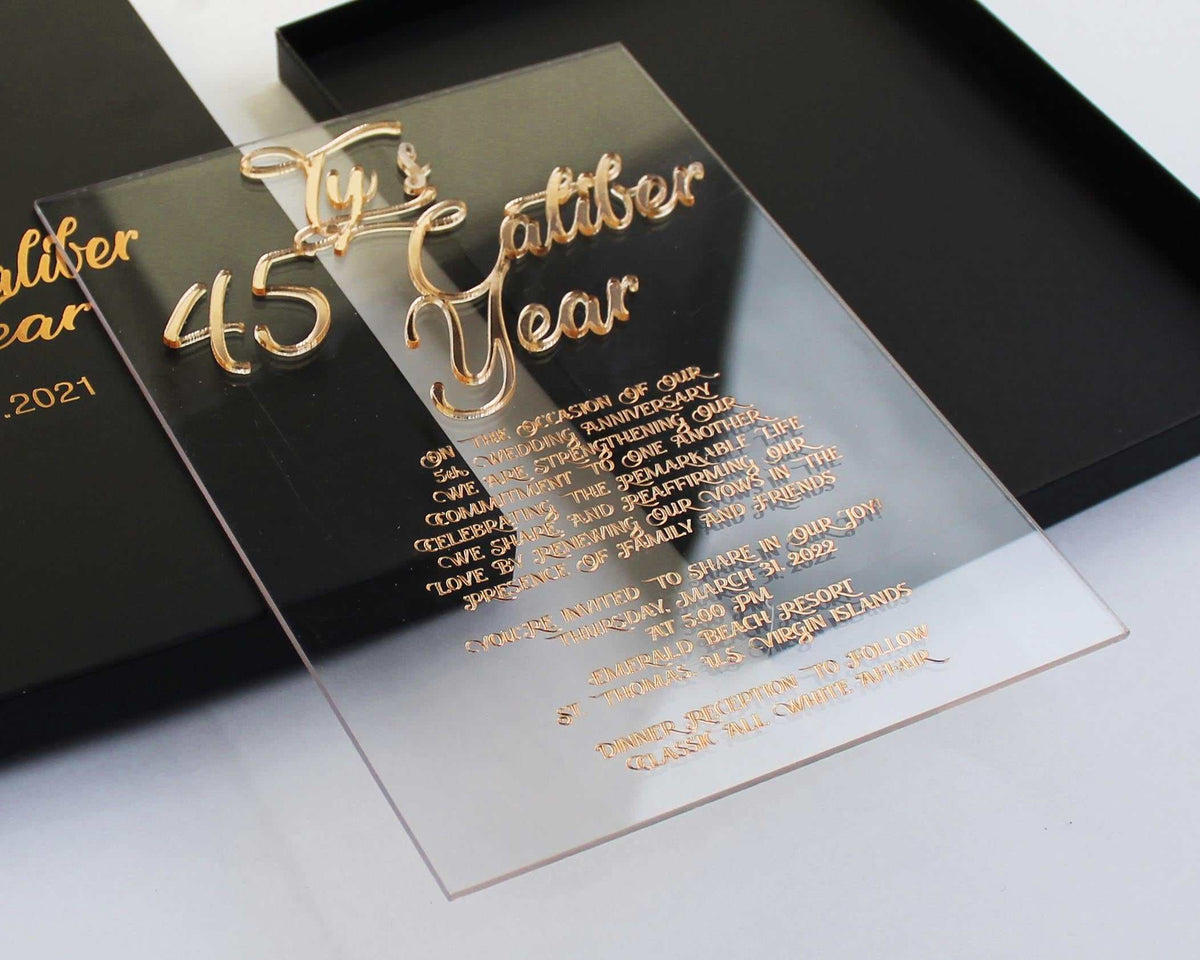 Ty &
Caliber
45 Year
On The Occasion Of Our
5th Wedding Anniversary
We Are Strengthening Our
Commitment To One Another,
Celebrating The Remarkable Life
We Share, And Reaffirming Our
Love By Renewing Our Vows In The
Presence Of Family And Friends
You're Invited To Share In Our Joy!
Thursday, March 31, 2022
At 5:00 PM
Emerald Beach Resort
St Thomas, U.S. Virgin Islands
Dinner Reception To Follow
Classic All White Affair
aliber
ear
.2021